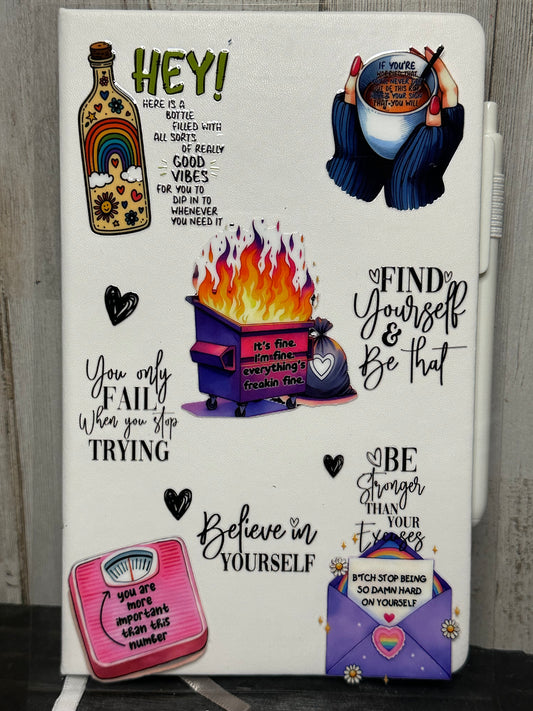 HEY!
HERE IS A
BOTTLE
FILLED WITH
ALL SORTS
OF REALLY
GOOD
VIBES
FOR YOU TO
DIP IN TO
WHENEVER
YOU NEED IT
IF YOU'RE
THAT
NEVER
THIS
YOUR
THAT YOU WILL
It's fine.
I'm fine.
everything's
freakin fine.
FIND
Yourself
&
Be that
You only
FAIL
When you stop
TRYING
BE
Stronger
THAN
YOUR
Excuses
Believe in
YOURSELF
you are
more
important
than this
number
B*TCH STOP BEING
SO DAMN HARD
ON YOURSELF